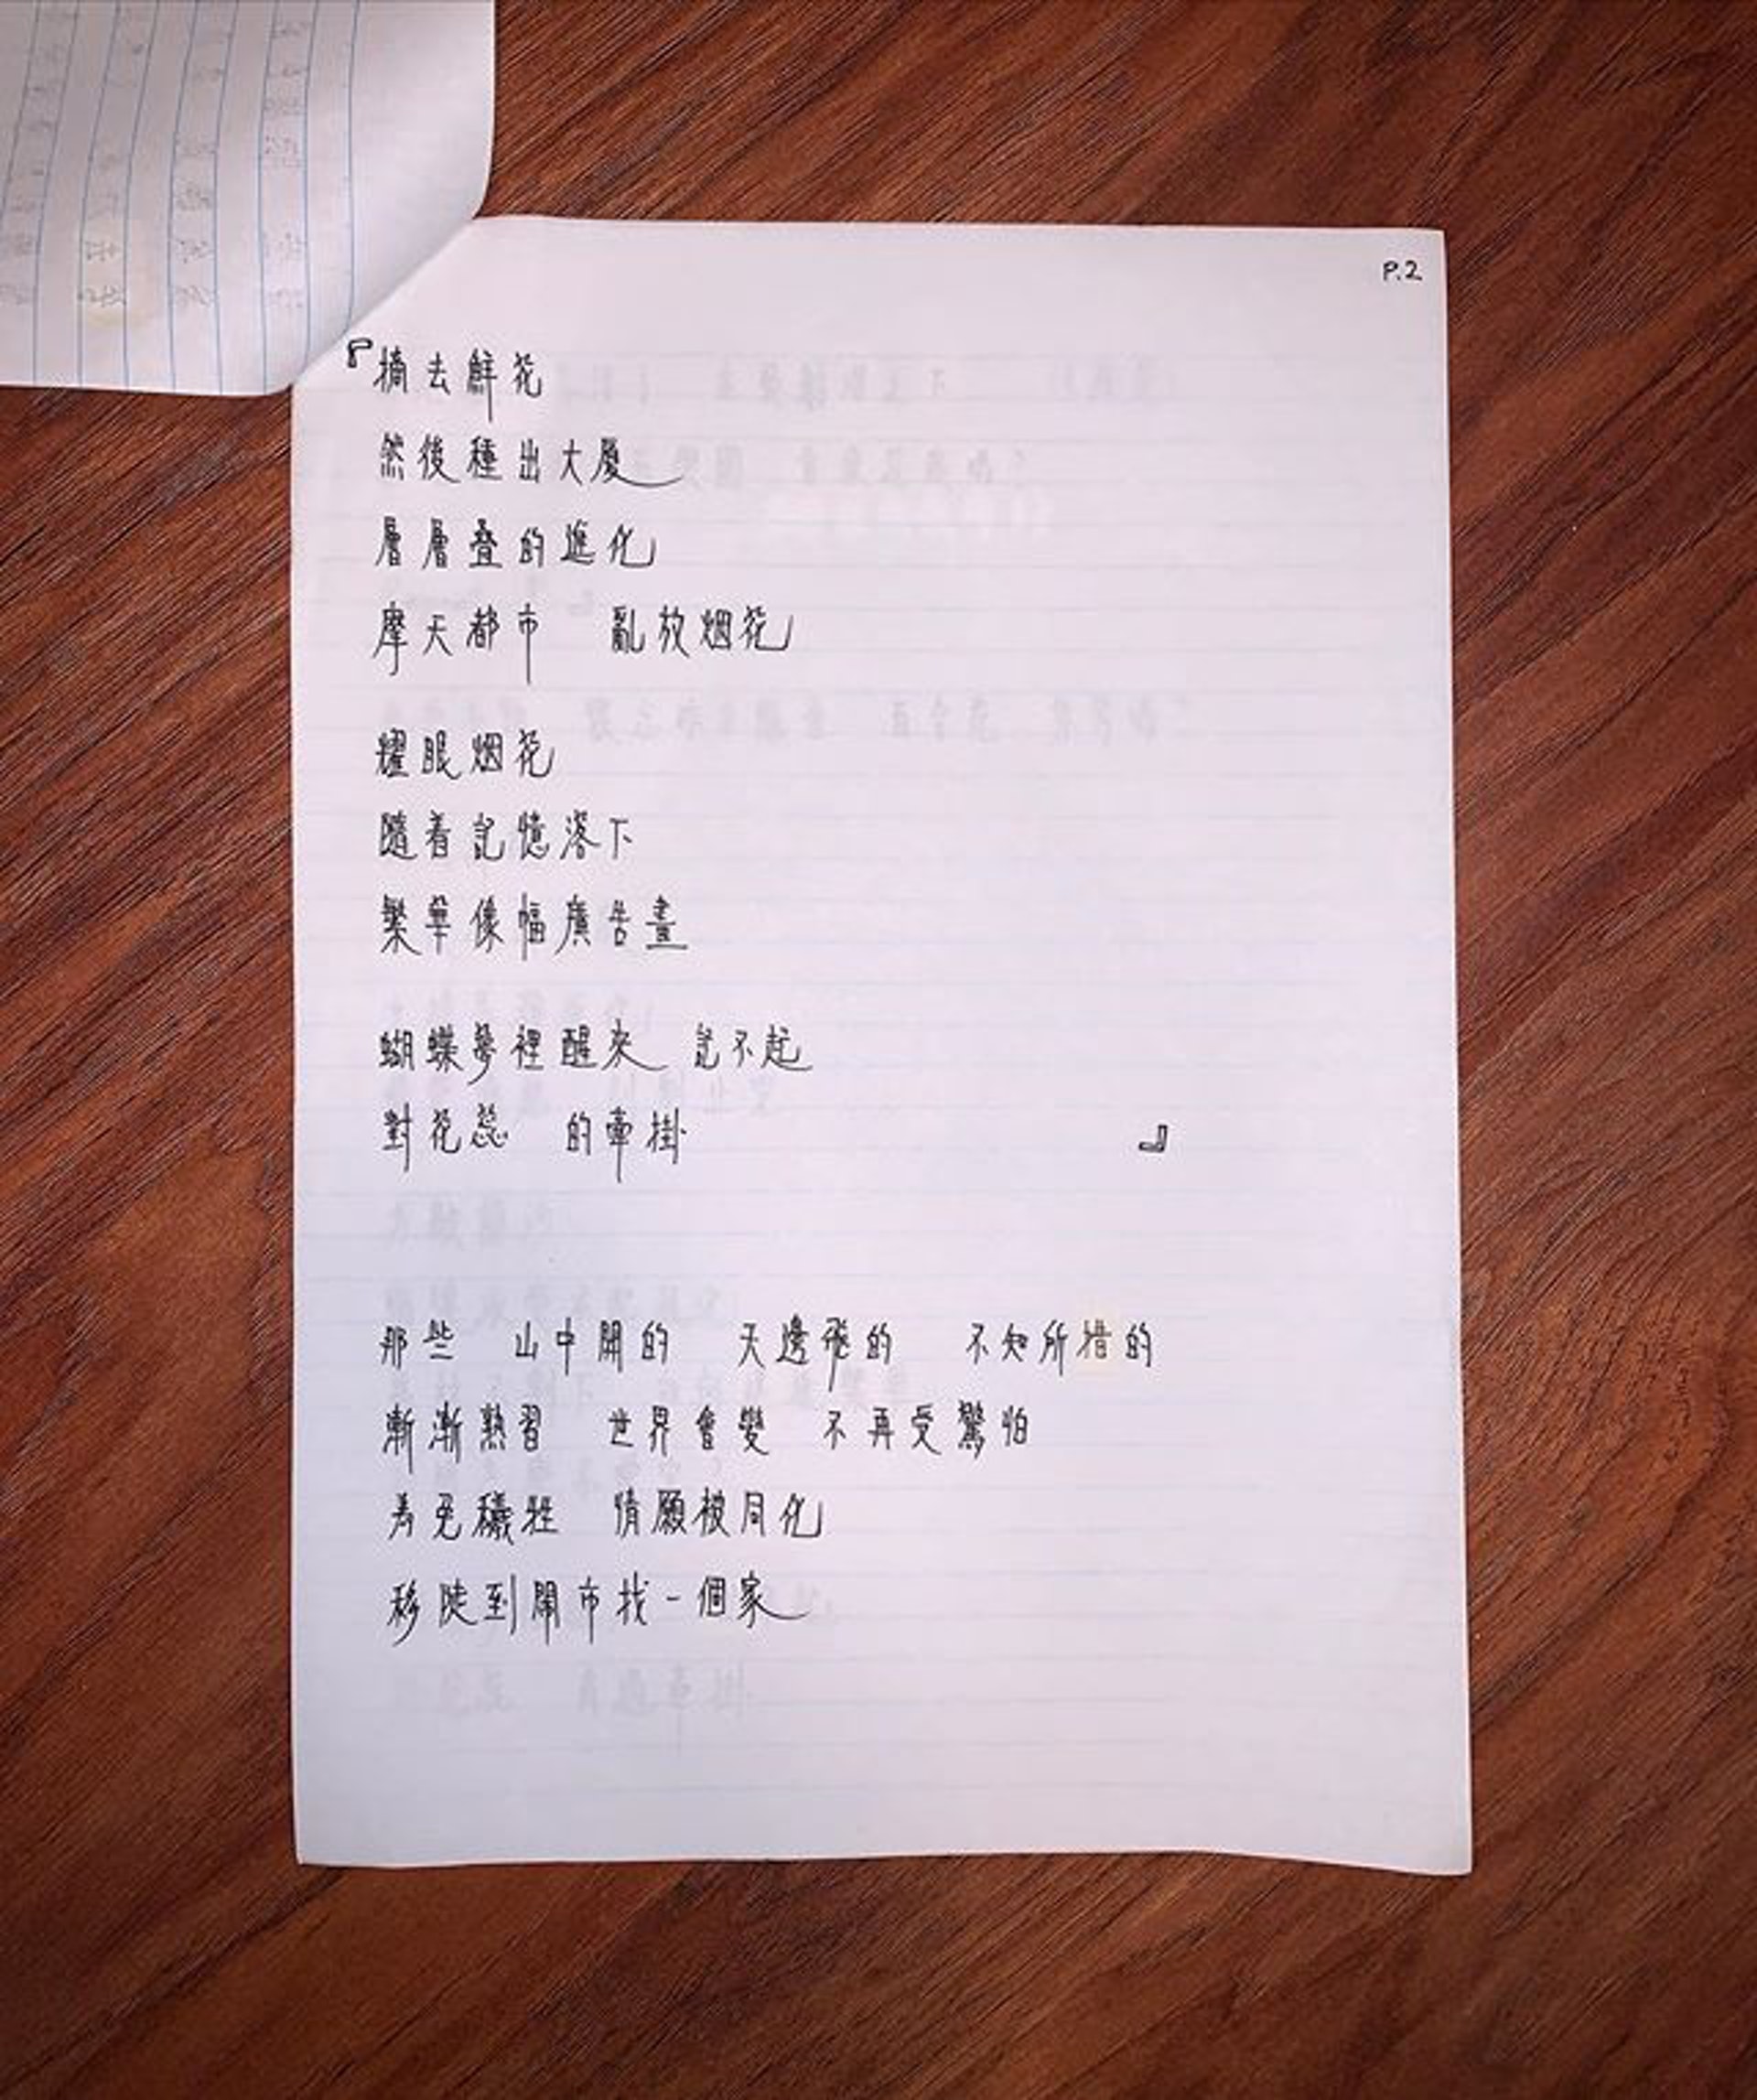 P.2
『摘去鮮花
然後種出大廈
層層叠的進化
摩天都市 亂放烟花
耀眼烟花
隨着記憶落下
繁華像幅廣告畫
蝴蝶夢裡醒來 記不起
對花蕊 的牽掛 』
那些 山中開的 天邊飛的 不知所措的
漸漸熟習 世界會變 不再受驚怕
為免犧牲 情願被同化
移陡到鬧市找一個家